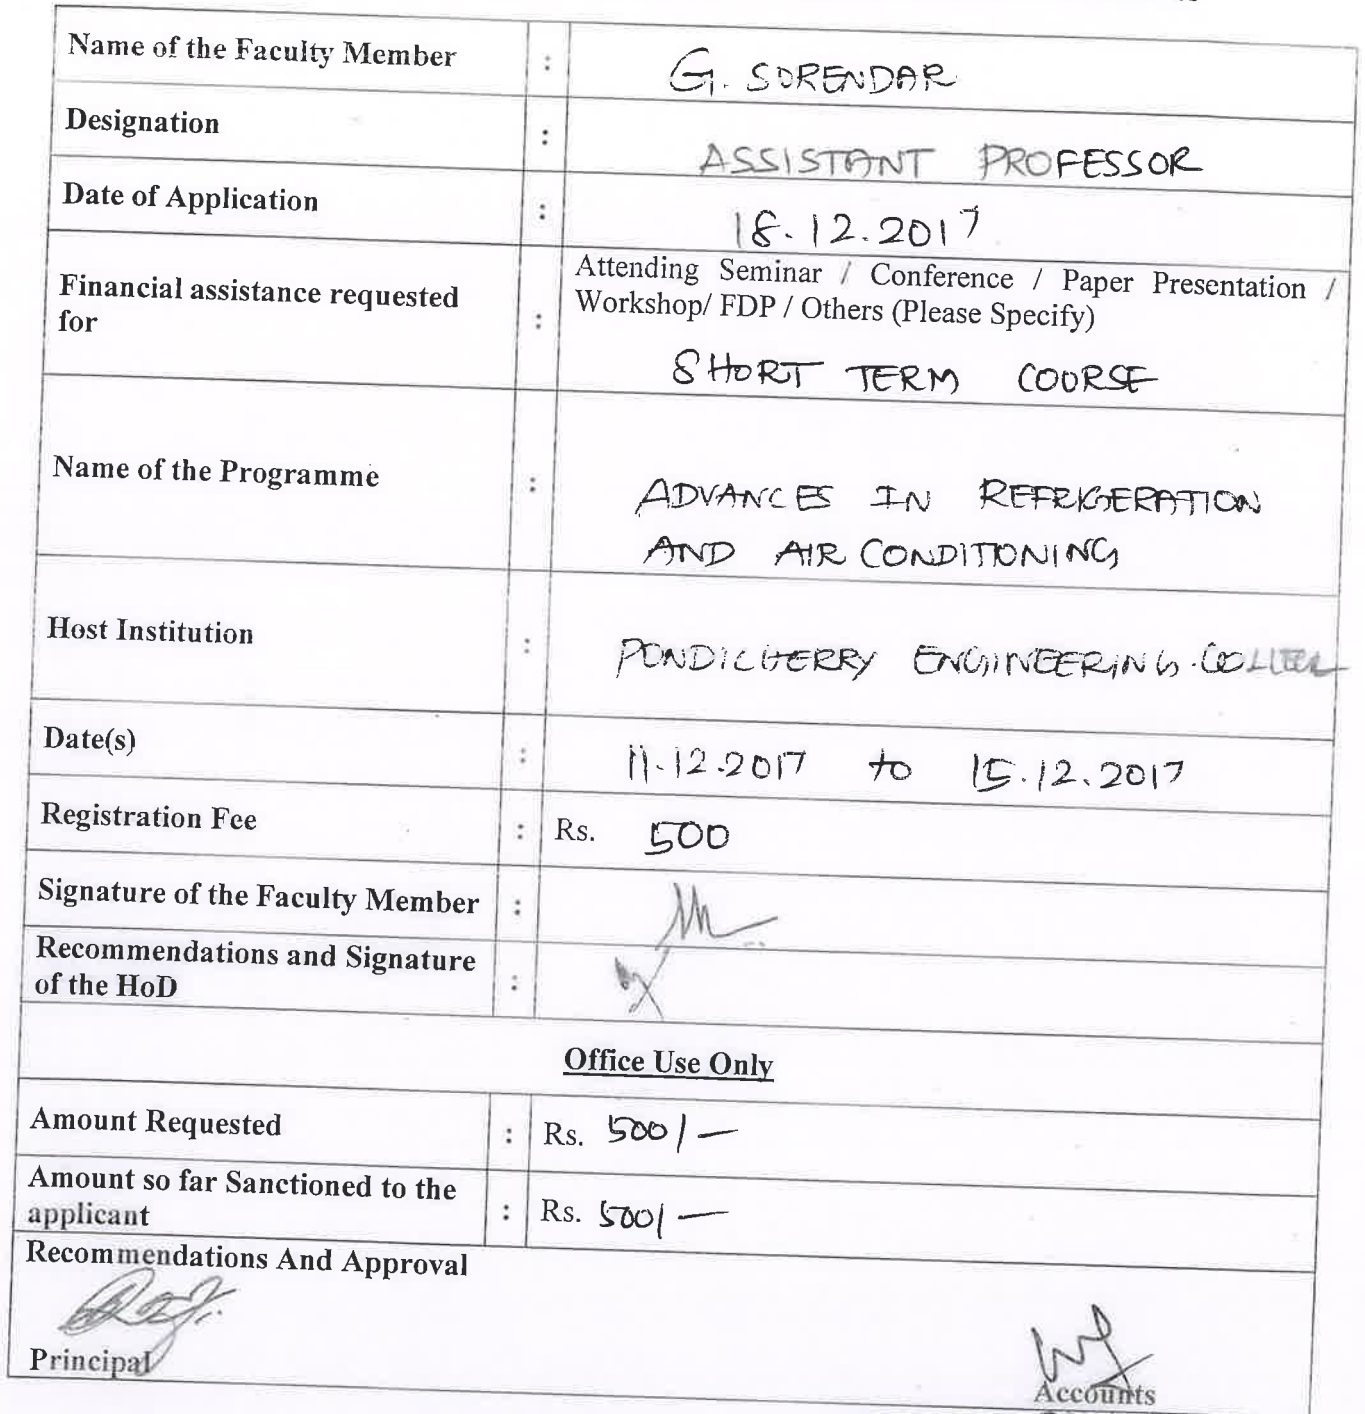 Name of the Faculty Member : G. SURENDAR
Designation : ASSISTANT PROFESSOR
Date of Application : 18.12.2017
Financial assistance requested for : Attending Seminar / Conference / Paper Presentation /
Workshop/ FDP / Others (Please Specify)
SHORT TERM COURSE
Name of the Programme : ADVANCES IN REFRIGERATION
AND AIR CONDITIONING
Host Institution : PONDICHERRY ENGINEERING
Date(s) : 11.12.2017 to 15.12.2017
Registration Fee : Rs. 500
Signature of the Faculty Member :
Recommendations and Signature
of the HoD :
Office Use Only
Amount Requested : Rs. 500/—
Amount so far Sanctioned to the
applicant : Rs. 500/—
Recommendations And Approval
Principal
Accounts